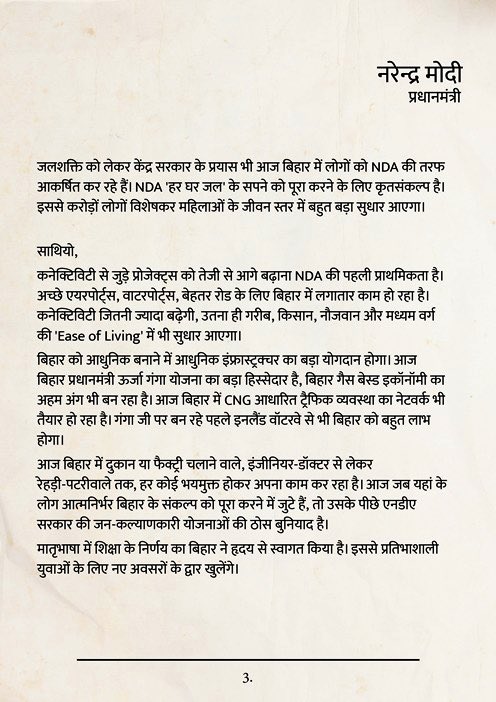 नरेन्द्र मोदी
प्रधानमंत्री
जलशक्ति को लेकर केंद्र सरकार के प्रयास भी आज बिहार में लोगों को NDA की तरफ
आकर्षित कर रहे हैं। NDA 'हर घर जल' के सपने को पूरा करने के लिए कृतसंकल्प है।
इससे करोड़ों लोगों विशेषकर महिलाओं के जीवन स्तर में बहुत बड़ा सुधार आएगा।
साथियो,
कनेक्टिविटी से जुड़े प्रोजेक्ट्स को तेजी से आगे बढ़ाना NDA की पहली प्राथमिकता है।
अच्छे एयरपोर्ट्स, वाटरपोर्ट्स, बेहतर रोड के लिए बिहार में लगातार काम हो रहा है।
कनेक्टिविटी जितनी ज्यादा बढ़ेगी, उतना ही गरीब, किसान, नौजवान और मध्यम वर्ग
की 'Ease of Living' में भी सुधार आएगा।
बिहार को आधुनिक बनाने में आधुनिक इंफ्रास्ट्रक्चर का बड़ा योगदान होगा। आज
बिहार प्रधानमंत्री ऊर्जा गंगा योजना का बड़ा हिस्सेदार है, बिहार गैस बेस्ड इकॉनॉमी का
अहम अंग भी बन रहा है। आज बिहार में CNG आधारित ट्रैफिक व्यवस्था का नेटवर्क भी
तैयार हो रहा है। गंगा जी पर बन रहे पहले इनलैंड वॉटरवे से भी बिहार को बहुत लाभ
होगा।
आज बिहार में दुकान या फैक्ट्री चलाने वाले, इंजीनियर-डॉक्टर से लेकर
रेहड़ी-पटरीवाले तक, हर कोई भयमुक्त होकर अपना काम कर रहा है। आज जब यहां के
लोग आत्मनिर्भर बिहार के संकल्प को पूरा करने में जुटे हैं, तो उसके पीछे एनडीए
सरकार की जन-कल्याणकारी योजनाओं की ठोस बुनियाद है।
मातृभाषा में शिक्षा के निर्णय का बिहार ने हृदय से स्वागत किया है। इससे प्रतिभाशाली
युवाओं के लिए नए अवसरों के द्वार खुलेंगे।
3.